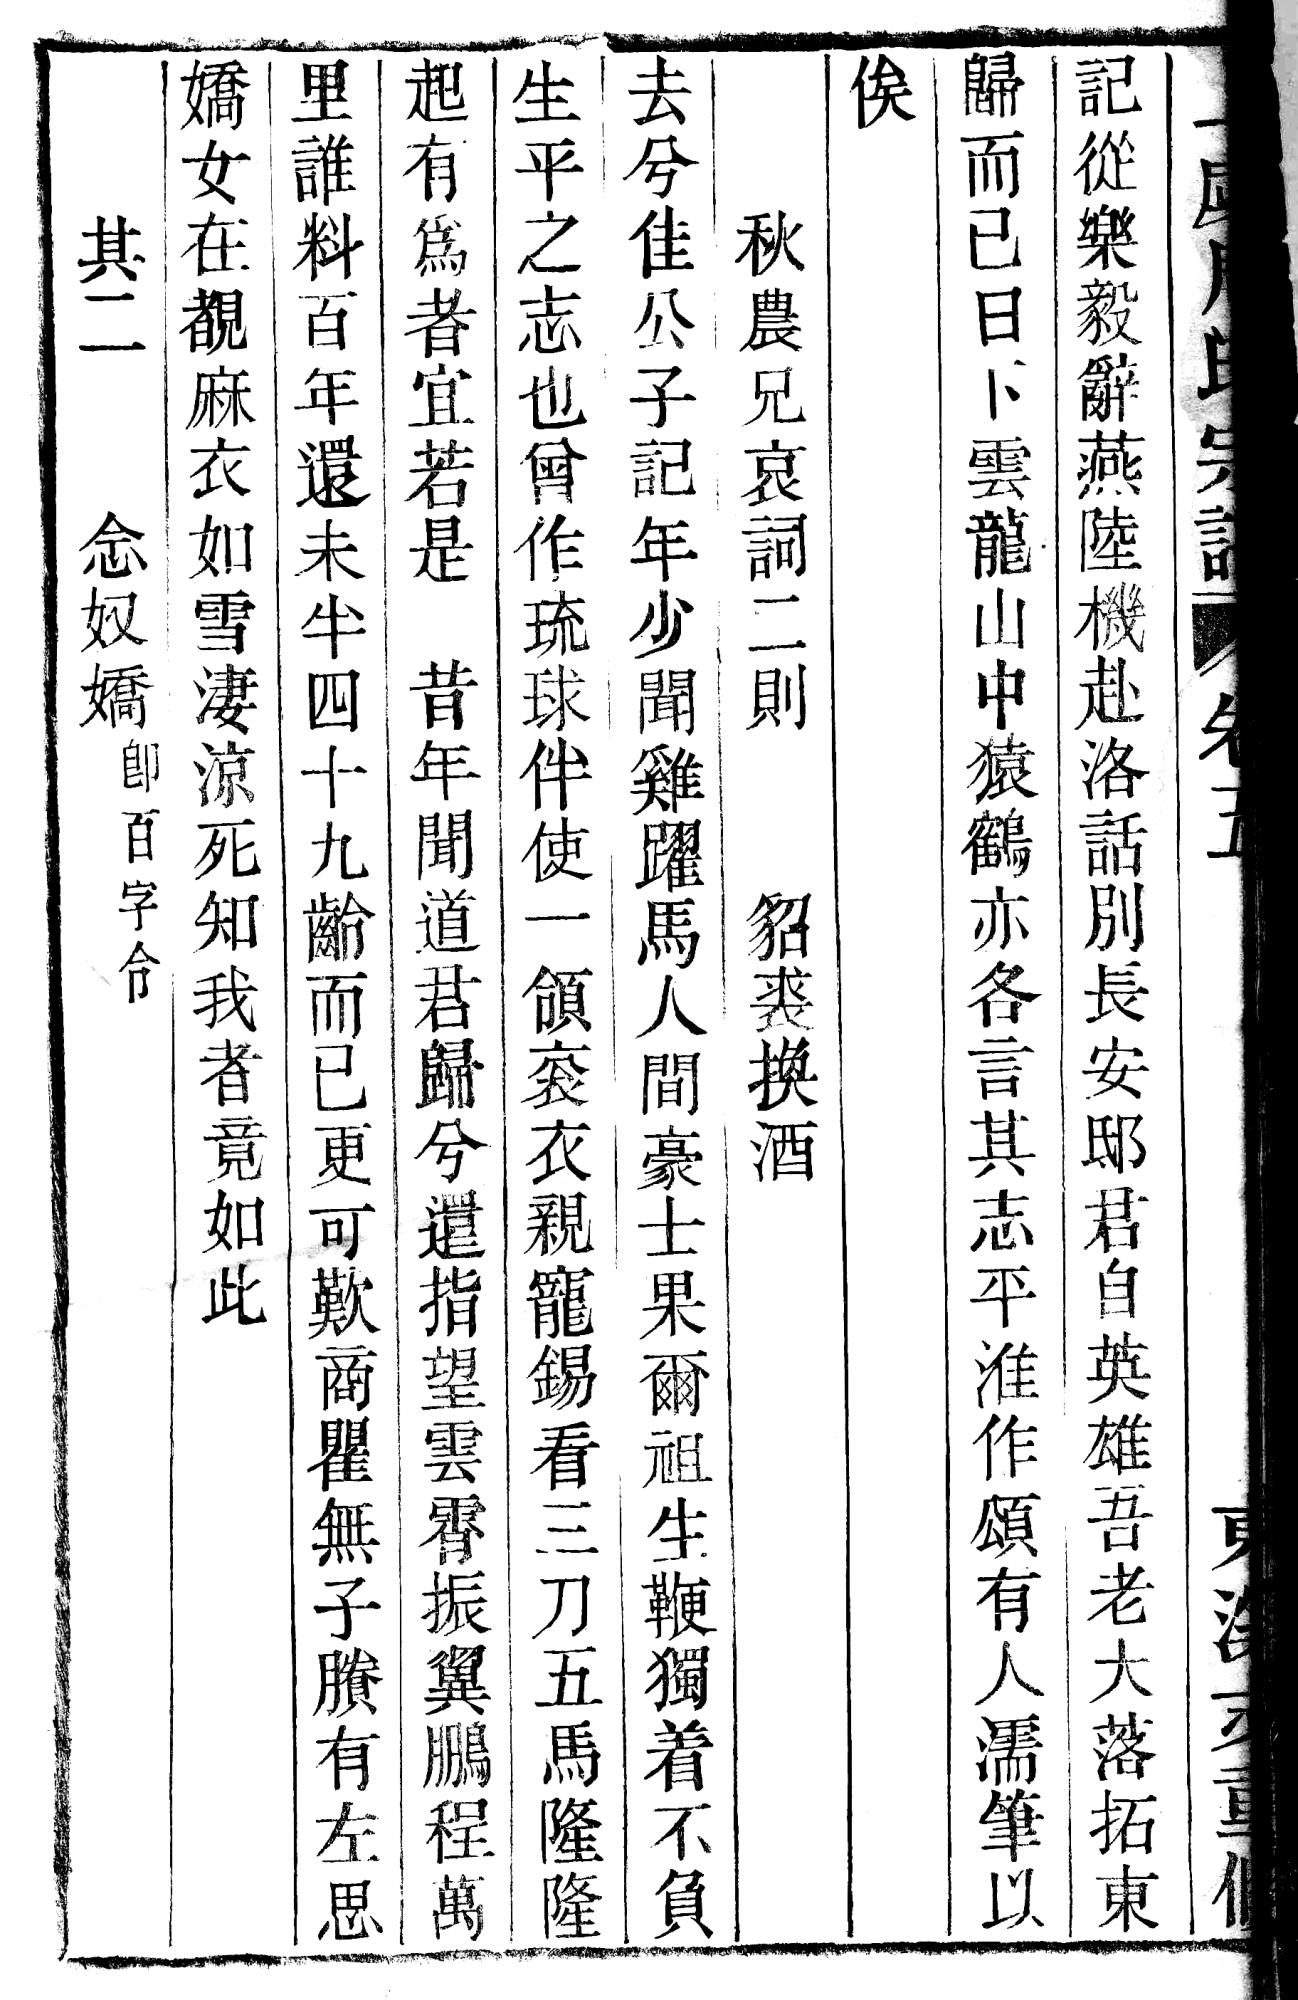 卷五
記從樂毅辭燕陸機赴洛話別長安邸君自英雄吾老大落拓東
歸而已日卜雲龍山中猿鶴亦各言其志平淮作頌有人濡筆以
俟
秋農兄哀詞二則　貂裘換酒
去兮佳公子記年少聞雞躍馬人間豪士果爾祖生鞭獨着不負
生平之志也曾作琉球伴使一領衮衣親寵錫看三刀五馬隆隆
起有爲者宜若是　昔年聞道君歸兮還指望雲霄振翼鵬程萬
里誰料百年還未半四十九齡而已更可歎商瞿無子賸有左思
嬌女在覩麻衣如雪淒涼死知我者竟如此
其二　念奴嬌卽百字令